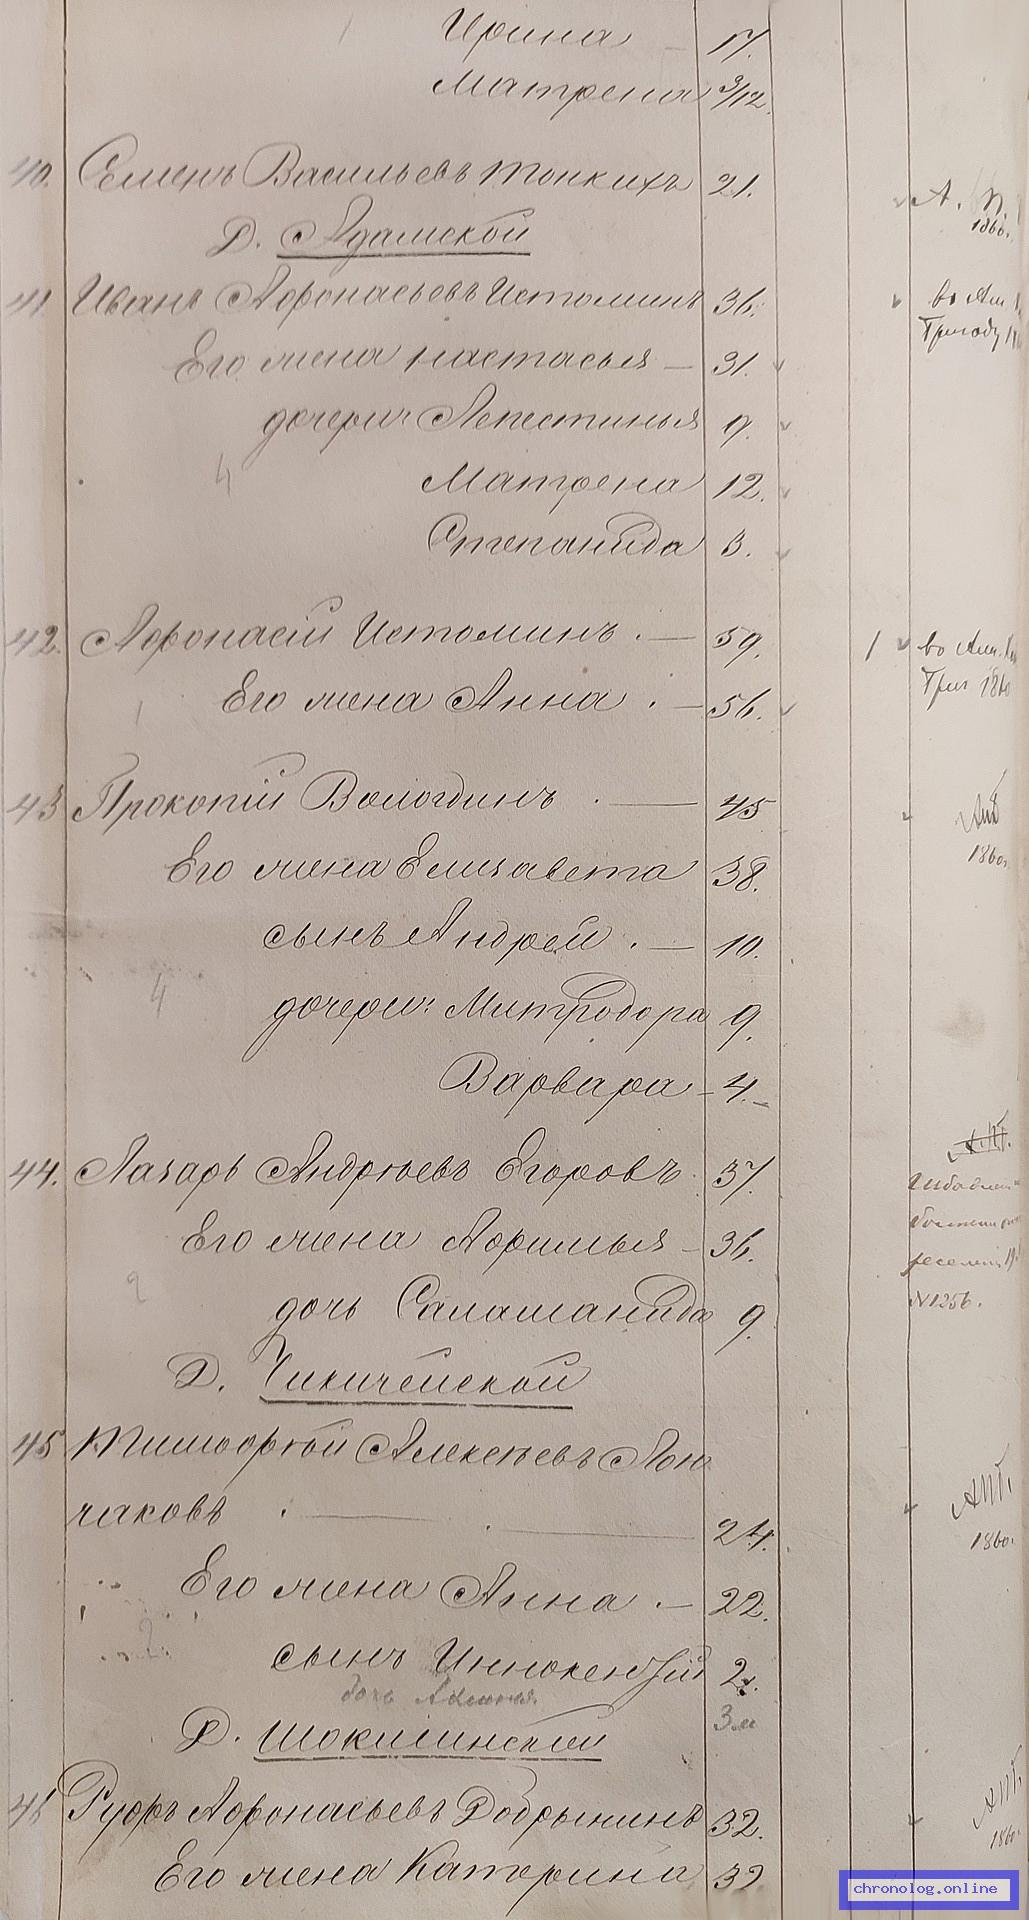 Ирина 17.
Матрена 3/12
40. Семенъ Васильевъ Тонкихъ 21. А. П. 1860 г.
Д. Адамской
41 Иванъ Афонасьевъ Истоминъ 36. во Ам.
Его жена Настасья — 31.
дочери: Апестинья 9.
4 Матрена 12.
Степанида 3.
42. Афонасій Истоминъ . — 59. 1 во Ам.
1 Его жена Анна . — 56. 1860
43 Прокопій Вологдинъ . — 45
Его жена Елизавета 38. 1860г.
сынъ Андрей . — 10.
4 дочери: Митродора 9.
Варвара - 4. -
44. Лазарь Андреевъ Егоровъ 37.
Его жена Афимья - 36.
2 дочь Саламанида 9. N 1256.
Д. Чикичейской
45 Тимофѣй Алексѣевъ Лон
чаковъ . — . — 24. 1860.
Его жена Анна . — 22.
2. сынъ Иннокентій 2.
дочь Аксинья 3 м
Д. Шокшинской
46 Руфъ Афонасьевъ Добрынинъ 32. 1860
Его жена Катерина 32.
chronolog.online